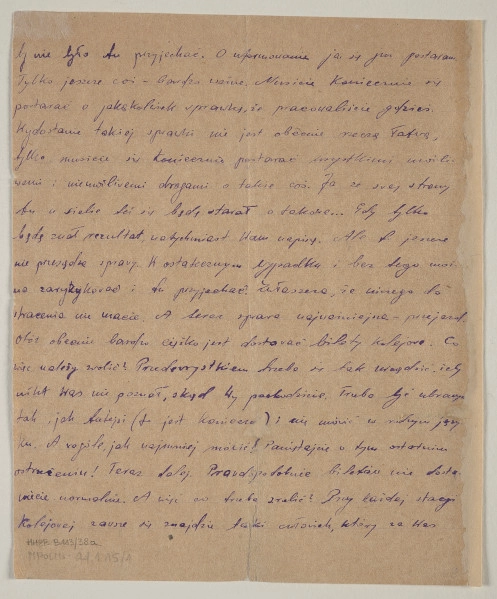 by nie było tu przyjechać. O uformowanie ja się już postaram.
Tylko jeszcze coś – bardzo ważne. Musicie koniecznie się
postarać o jakąkolwiek sprawkę, że pracowaliście gdzieś.
Wydostanie takiej sprawki nie jest obecnie rzeczą łatwą,
tylko musicie się koniecznie postarać wszystkimi możli-
wemi i niemożliwemi drogami o takie coś. Ja ze swej strony
tu u siebie też się będę starał o takie... Gdy tylko
będę znał rezultat, natychmiast Wam napiszę. Ale to jeszcze
nie przesądza sprawy. W ostatecznym wypadku i bez tego moż-
na zaryzykować i tu przyjechać. Zwłaszcza, że niczego do
stracenia nie macie. A teraz sprawa najważniejsza – przejazd.
Otóż obecnie bardzo ciężko jest dostawać bilety kolejowe. Co
więc należy zrobić? Przedewszystkiem trzeba się tak urządzić, żeby
nikt Was nie poznał, skąd Wy pochodzicie. Trzeba być ubranym
tak, jak tutejsi (to jest konieczne) i nie mówić w swym języ-
ku. A wogóle, jak najmniej mówić! Pamiętajcie o tym ostatnim
ostrzeżeniu! Teraz dalej. Prawdopodobnie biletów nie dosta-
niecie normalnie. A więc co trzeba zrobić? Przy każdej stacji
kolejowej zawsze się znajdzie taki człowiek, który za Was